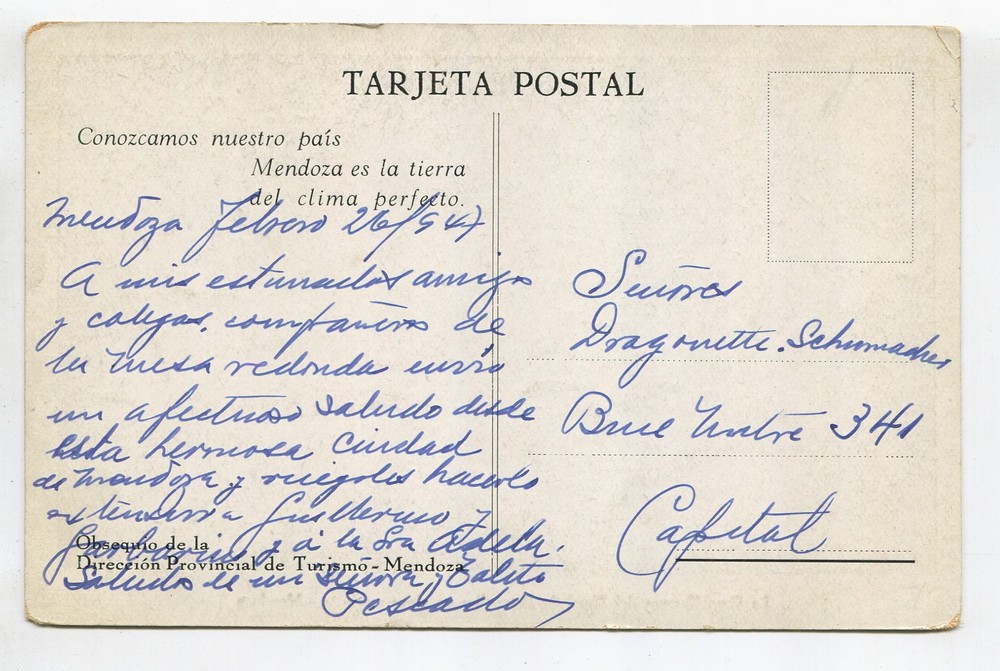 TARJETA POSTAL
Conozcamos nuestro país
Mendoza es la tierra
del clima perfecto.
Mendoza febrero 26/947
A mis estimados amigos
y colegas, compañeros de
la mesa redonda envio
un afectuoso saludo desde
esta hermosa ciudad
de Mendoza y ruegoles hacerlo
Guillermo y
y a la Sra Adela.
Saludo de mi Señora y
Pescado
Obsequio de la
Dirección Provincial de Turismo - Mendoza
Señores
Dragonette. Schumacher
341
Capital